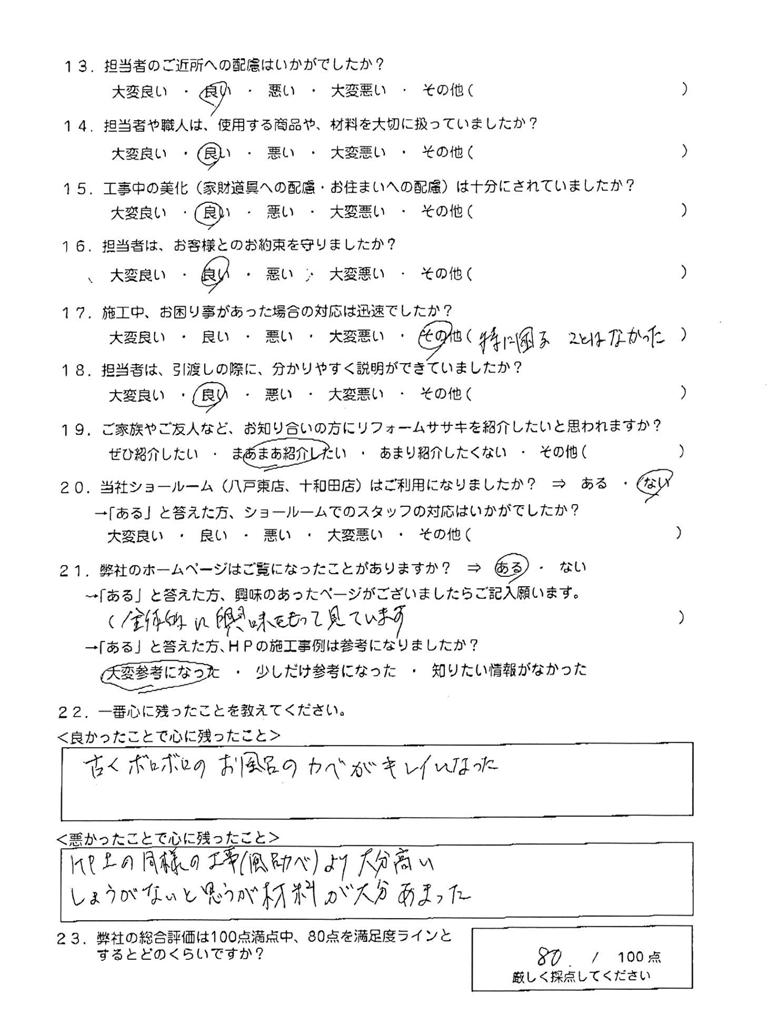 13．担当者のご近所への配慮はいかがでしたか？
大変良い ・ 良い ・ 悪い ・ 大変悪い ・ その他（ ）
14．担当者や職人は、使用する商品や、材料を大切に扱っていましたか？
大変良い ・ 良い ・ 悪い ・ 大変悪い ・ その他（ ）
15．工事中の美化（家財道具への配慮・お住まいへの配慮）は十分にされていましたか？
大変良い ・ 良い ・ 悪い ・ 大変悪い ・ その他（ ）
16．担当者は、お客様とのお約束を守りましたか？
大変良い ・ 良い ・ 悪い ・ 大変悪い ・ その他（ ）
17．施工中、お困り事があった場合の対応は迅速でしたか？
大変良い ・ 良い ・ 悪い ・ 大変悪い ・ その他（ 特に困る ことはなかった ）
18．担当者は、引渡しの際に、分かりやすく説明ができていましたか？
大変良い ・ 良い ・ 悪い ・ 大変悪い ・ その他（ ）
19．ご家族やご友人など、お知り合いの方にリフォームササキを紹介したいと思われますか？
ぜひ紹介したい ・ まあまあ紹介したい ・ あまり紹介したくない ・ その他（ ）
20．当社ショールーム（八戸東店、十和田店）はご利用になりましたか？ ⇒ ある ・ ない
→「ある」と答えた方、ショールームでのスタッフの対応はいかがでしたか？
大変良い ・ 良い ・ 悪い ・ 大変悪い ・ その他（ ）
21．弊社のホームページはご覧になったことがありますか？ ⇒ ある ・ ない
→「ある」と答えた方、興味のあったページがございましたらご記入願います。
（全体的に興味をもって見ています ）
→「ある」と答えた方、ＨＰの施工事例は参考になりましたか？
大変参考になった ・ 少しだけ参考になった ・ 知りたい情報がなかった
22．一番心に残ったことを教えてください。
＜良かったことで心に残ったこと＞
古くボロボロのお風呂のカベがキレイになった
＜悪かったことで心に残ったこと＞
HP上の同様の工事(風呂カベ)より大分高い
しょうがないと思うが材料が大分あまった
23．弊社の総合評価は100点満点中、80点を満足度ラインと
するとどのくらいですか？
80 / 100点
厳しく採点してください